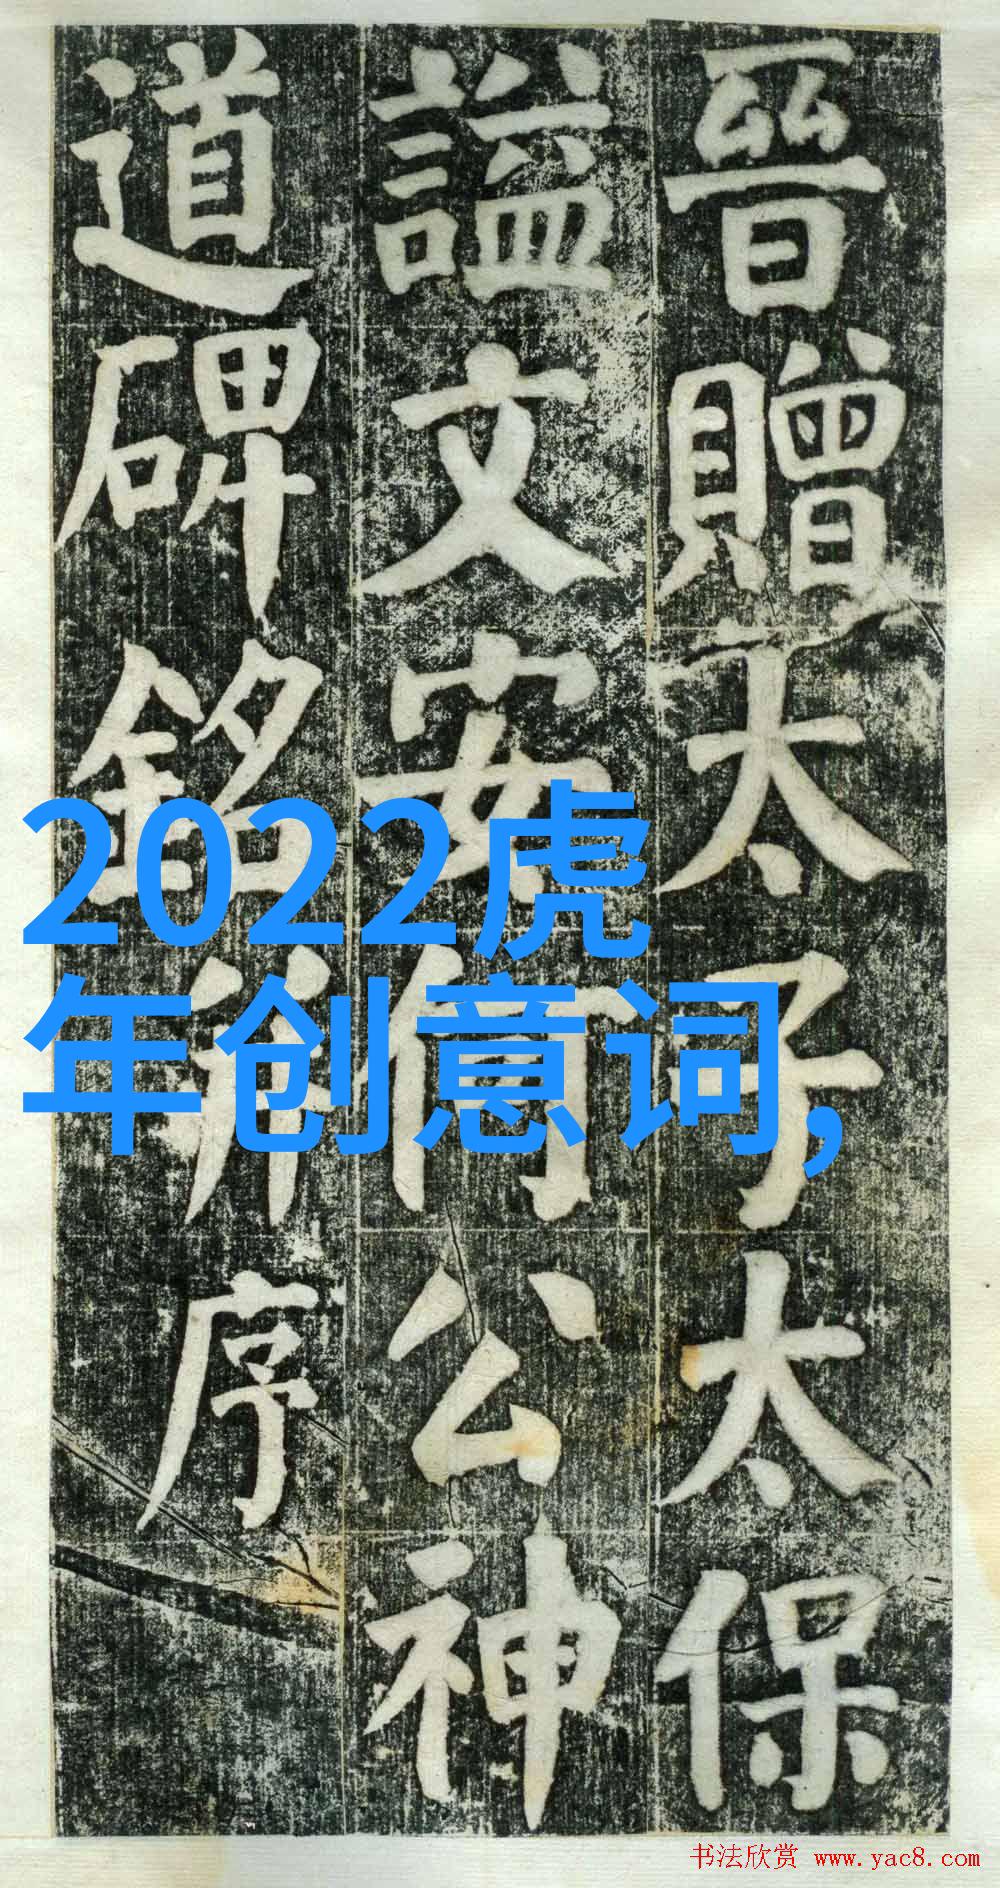 晉贈太子太保
謚文安何公神
道碑銘并序
2022虎
年创意词,
书法欣赏 www.yac8.com